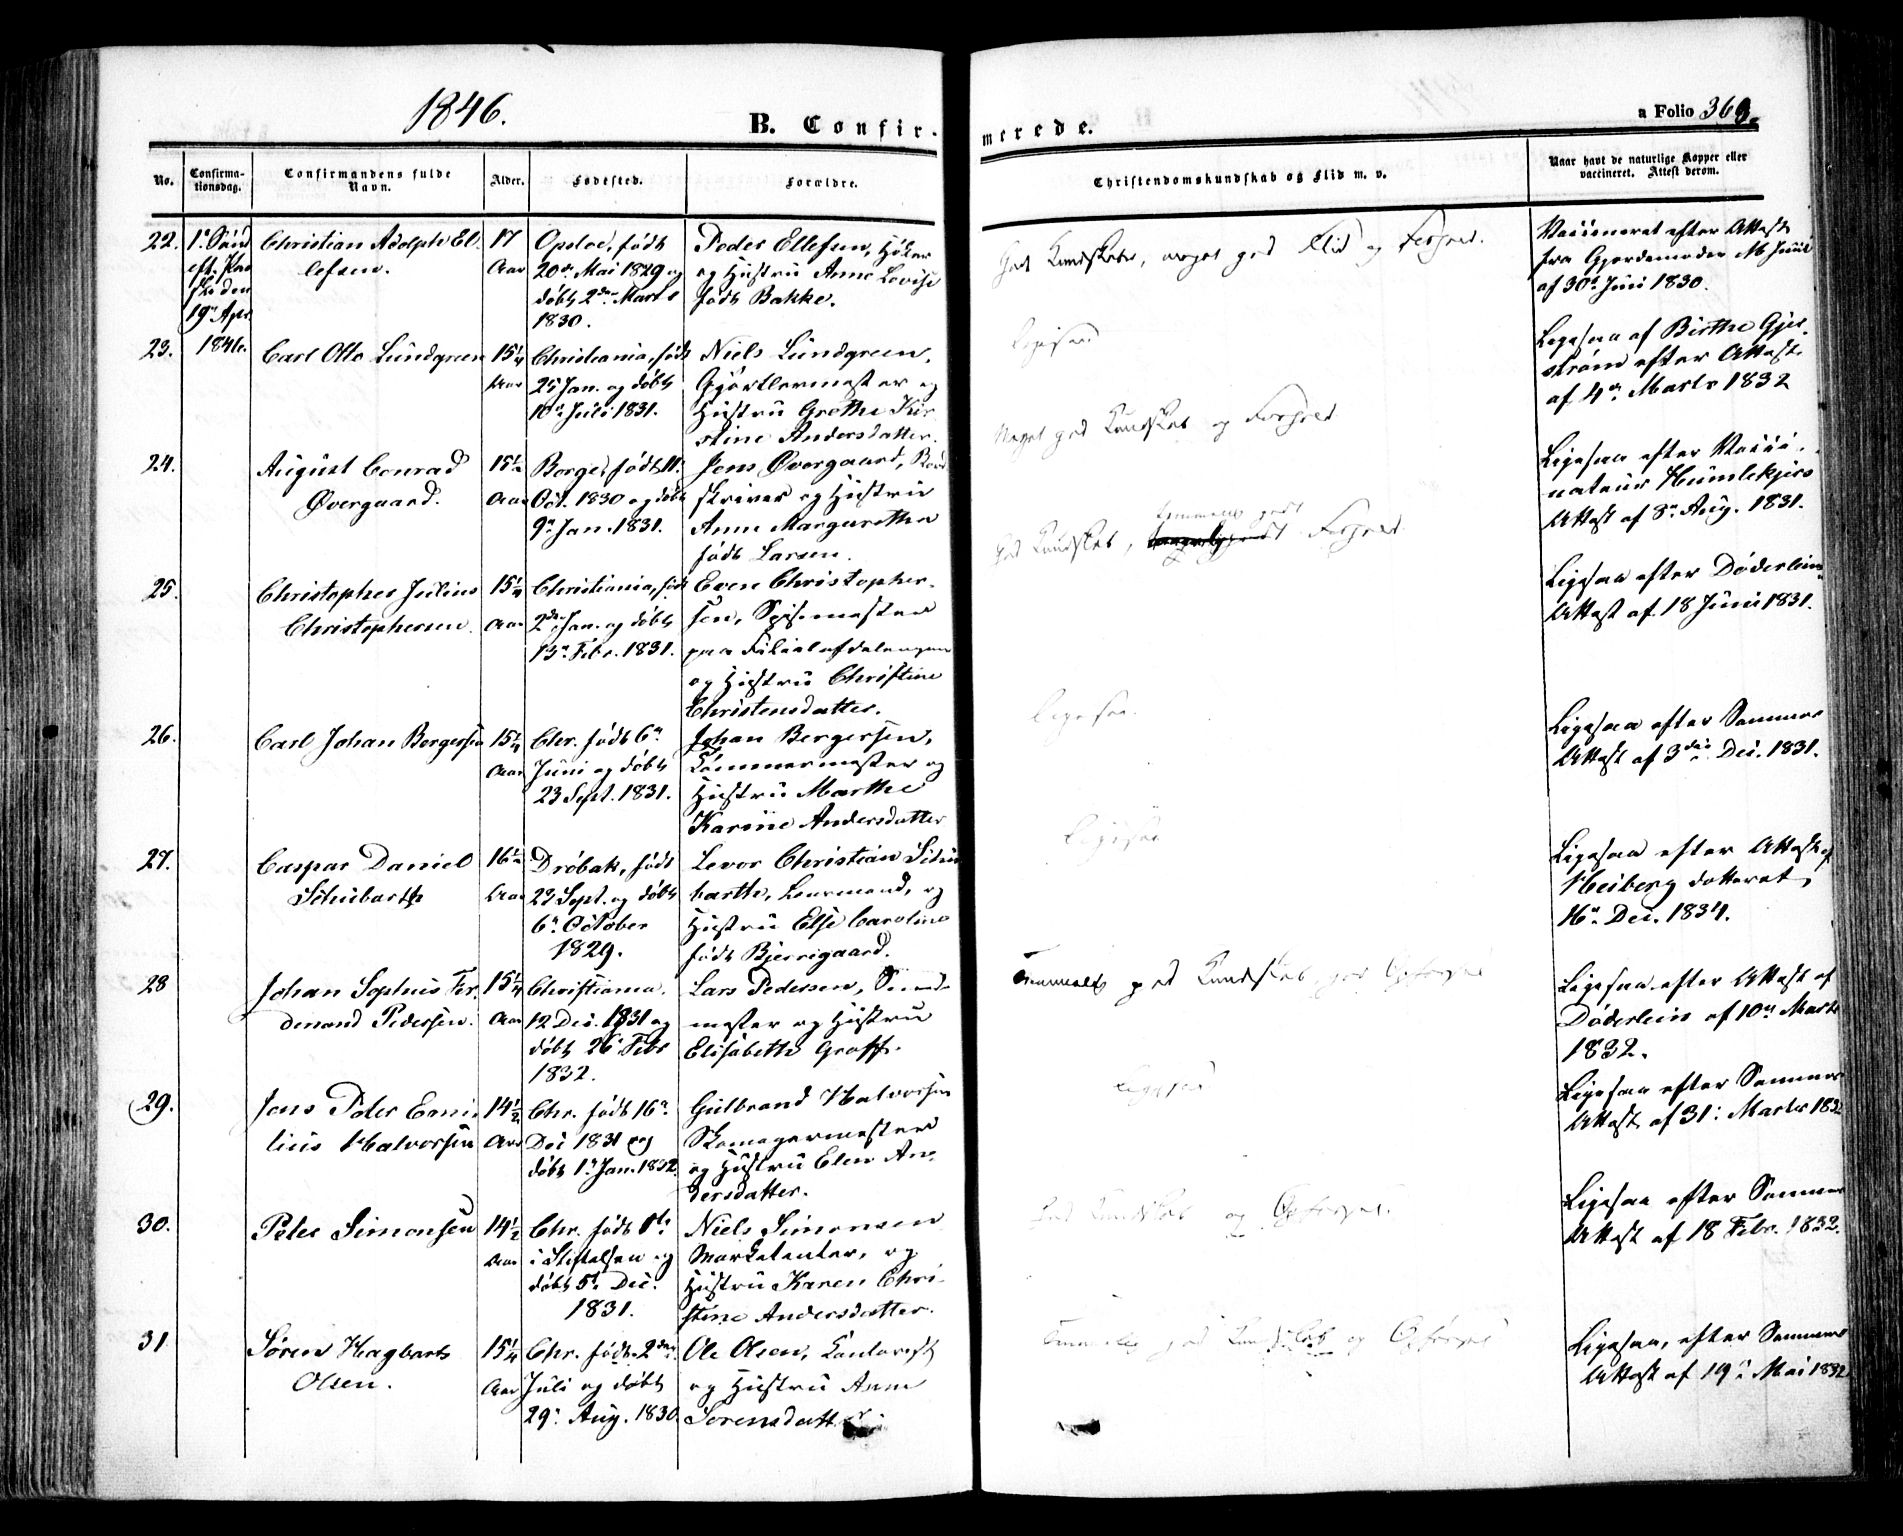 1846.
B. Confir-
merede.
a Folio 363.
No.
Confirma-
tionsdag.
Confirmandens fulde
Navn.
Alder.
Fødested.
Forældre.
Christendomskundskab og Flid m. v.
Naar havt de naturlige Kopper eller
vaccineret. Attest derom.
22.
1ste Sønd
eft. Paa
ske den
19de Apr.
1846.
Christian Adolph El-
lefsen.
17
Aar
Opsloe, født
20de Mai 1829 og
døbt 2den Marts
1830.
Peder Ellefsen, Høker
og Hustru Anne Lovise
født Bakke.
God Kundskab, meget god Flid og Forhold.
Vaccineret efter Attest
fra Gjordemoder M Juul
af 30te Juni 1830.
23.
Carl Otto Lundgreen
15 1/4
Aar
Christiania, født
25 Jan. og døbt
10de Juli 1831.
Niels Lundgreen,
Gjørtlermester og
Hustru Grethe Kir-
stine Andersdatter.
Ligesaa
Ligesaa af Birthe Gjel-
strøm efter Attest
af 4de Marts 1832
24.
August Conrad
Øvergaard.
15 1/2
Aar
Borge, født 11te
Oct. 1830 og døbt
9de Jan. 1831.
Jens Øvergaard,
skriver og Hustru
Anne Margarethe
født Larsen.
Meget god Kundskab og Forhold
Ligesaa efter Vacci-
nateur Humlekjærs
Attest af 8de Aug. 1831.
25.
Christopher Julius
Christophersen.
15 1/4
Aar
Christiania, født
2den Jan. og døbt
13de Febr. 1831.
Even Christopher-
sen, Spisemester
paa Filialafdelingen
og Hustru Christine
Christensdatter.
God Kundskab, temmelig godt Forhold.
Ligesaa efter Døderleins
Attest af 18 Juni 1831.
26.
Carl Johan Bergersen
15 1/4
Aar
Chr. født 6te
Juni og døbt
23 Sept. 1831.
Johan Bergersen,
Tømmermester og
Hustru Marthe
Karine Andersdatter
Ligesaa.
Ligesaa efter Sommers
Attest af 3die Dec. 1831.
27.
Caspar Daniel
Schubarth
16 1/2
Aar
Drøbak, født
23 Sept. og døbt
6te October
1829.
Levor Christian Schu-
barth, Leermand, og
Hustru Else Caroline
født Bjerregaard.
Ligesaa
Ligesaa efter Attest af
Heiberg dateret
16de Dec. 1834.
28
Johan Sophus Fer-
dinand Pedersen.
15 1/4
Aar
Christiania.
12 Dec. 1831 og
døbt 26 Febr
1832.
Lars Pedersen,
mester og Hustru
Elisabeth Graff.
Temmelig god Kundskab god Opførsel
Ligesaa efter Attest af
Døderlein af 10de Marts
1832.
29.
Jens Peter Emi-
lius Halvorsen
14 1/2
Aar
Chr. født 16de
Dec 1831 og
døbt 1ste Jan. 1832.
Gulbrand Halvorsen
Skomagermester
og Hustru Elen An-
dersdatter.
Ligesaa
Ligesaa efter Sommers
Attest af 31te Marts 1832
30.
Peter Simonsen
14 1/2
Aar
Chr. født
i Stiftelsen og
døbt 5te Dec.
1831.
Niels Simonsen
Marketenter, og
Hustru Karen Chri-
stine Andersdatter.
God Kundskab og Opførsel.
Ligesaa efter Sommers
Attest af 18 Febr. 1832.
31
Søren Hagbart
Olsen.
15 1/4
Aar
Chr. født 2den
Juli og døbt
29de Aug. 1830.
Ole Olsen, Contorist
og Hustru Anne
Sørensdatter
Temmelig god Kundskab og Opførsel
Ligesaa, efter Sommers
Attest af 19de Mai 1832